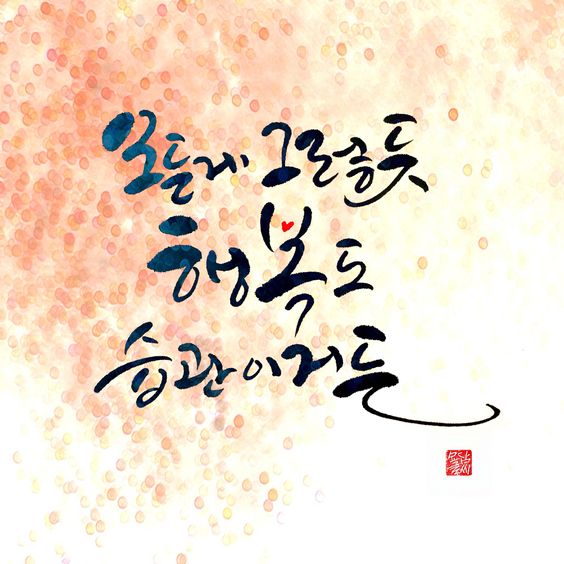 모든게 그러하듯
행복도
습관이거든